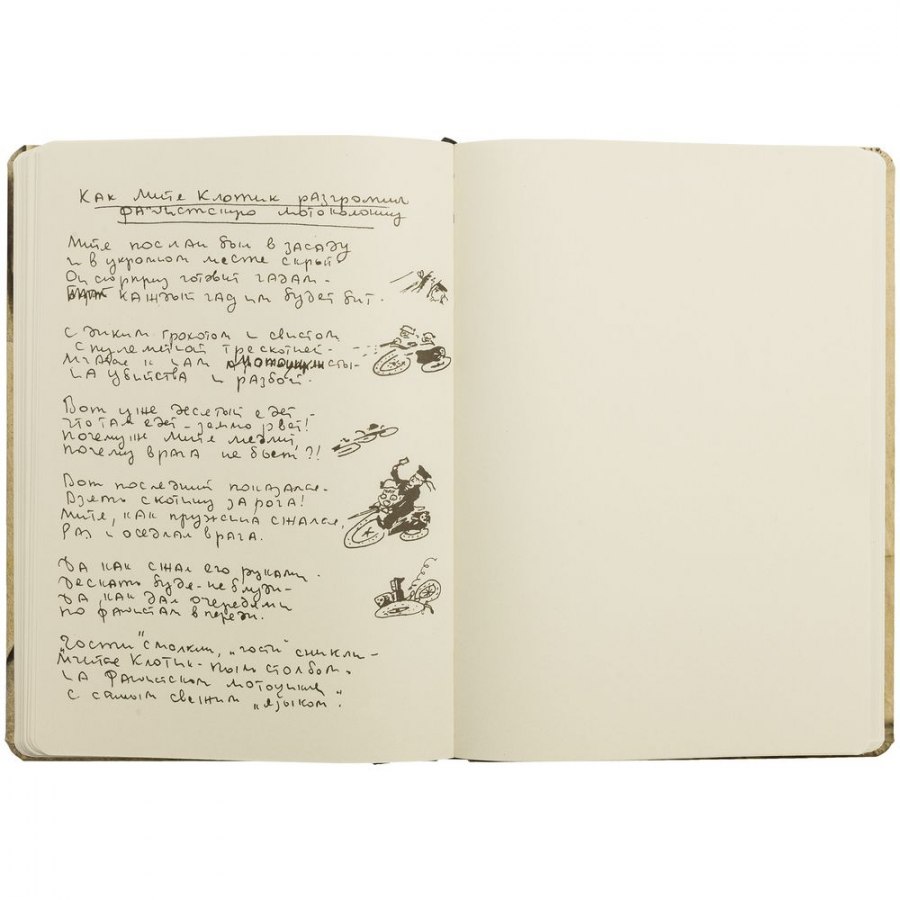 Как Митя Клотик разгромил
фашистскую мотоколонну
Митя послан был в засаду
и в укромном месте скрыт.
Он сюрприз готовит гадам -
каждый гад им будет бит.
С диким грохотом и свистом
с пулеметной трескотней -
Мчатся к нам мотоциклисты -
на убийства и разбой.
Вот уже десятый едет -
что там едет - землю рвет!
Почему ж Митя медлит,
почему врага не бьет?!
Вот последний показался -
Взять скотину за рога!
Митя, как пружина сжался,
Раз и оседлал врага.
Да как сжал его руками -
Дескать будя - не блуди -
Да как дал очередями
по фашистам впереди.
"Гости" смолкли, "гости" сникли -
Мчится Клотик - пыль столбом.
на фашистском мотоцикле
с самым свежим "языком".